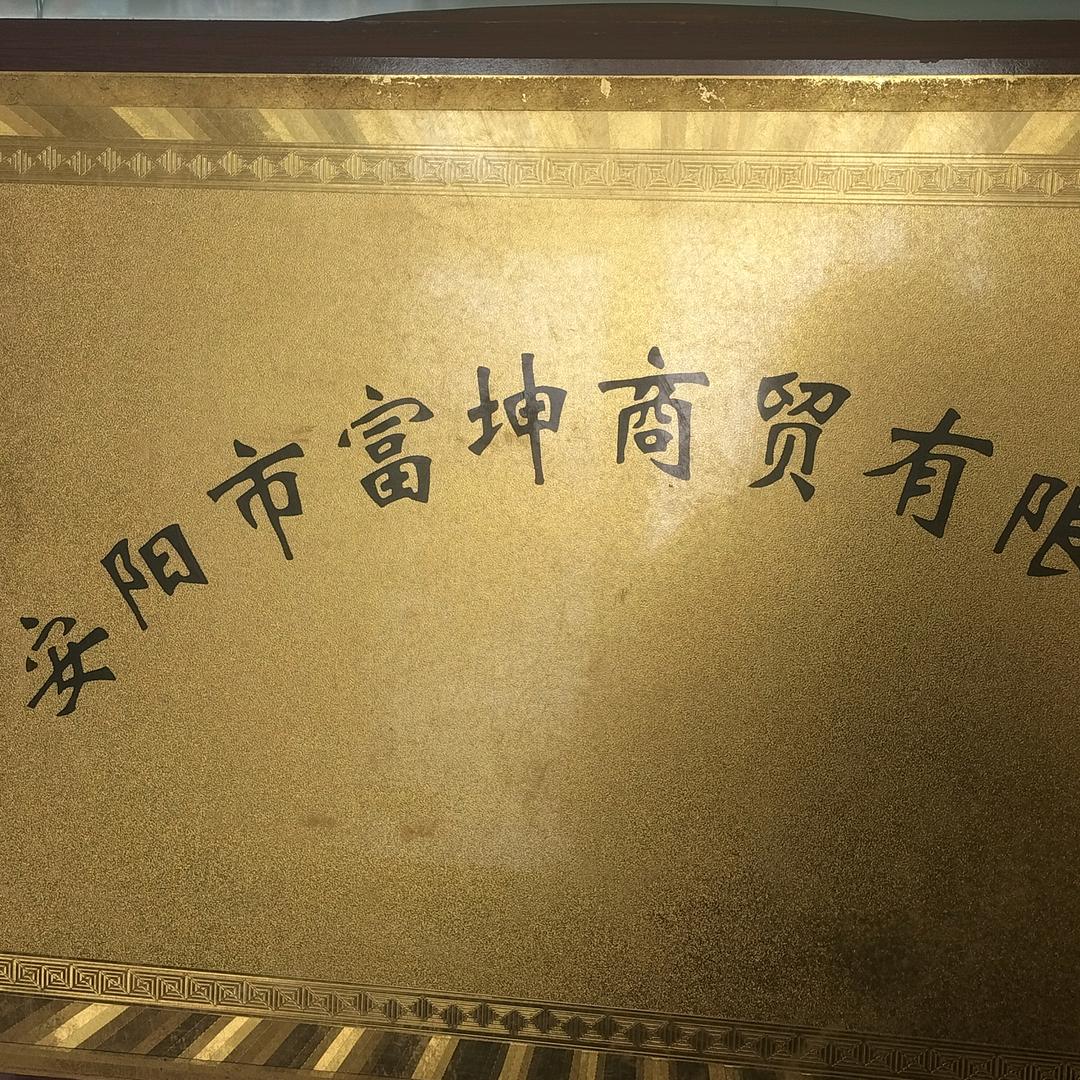 安阳市富坤商贸有限